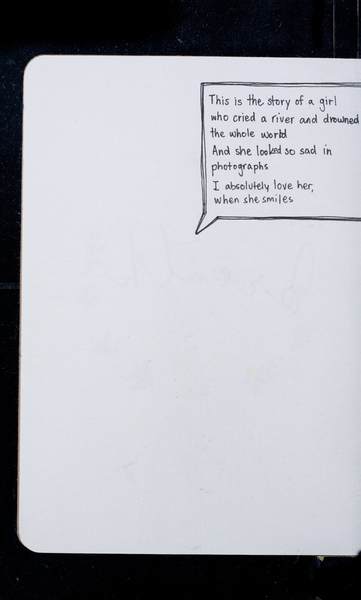 This is the story of a girl
who cried a river and drowned
the whole world
And she looked so sad in
photographs
I absolutely love her,
when she smiles